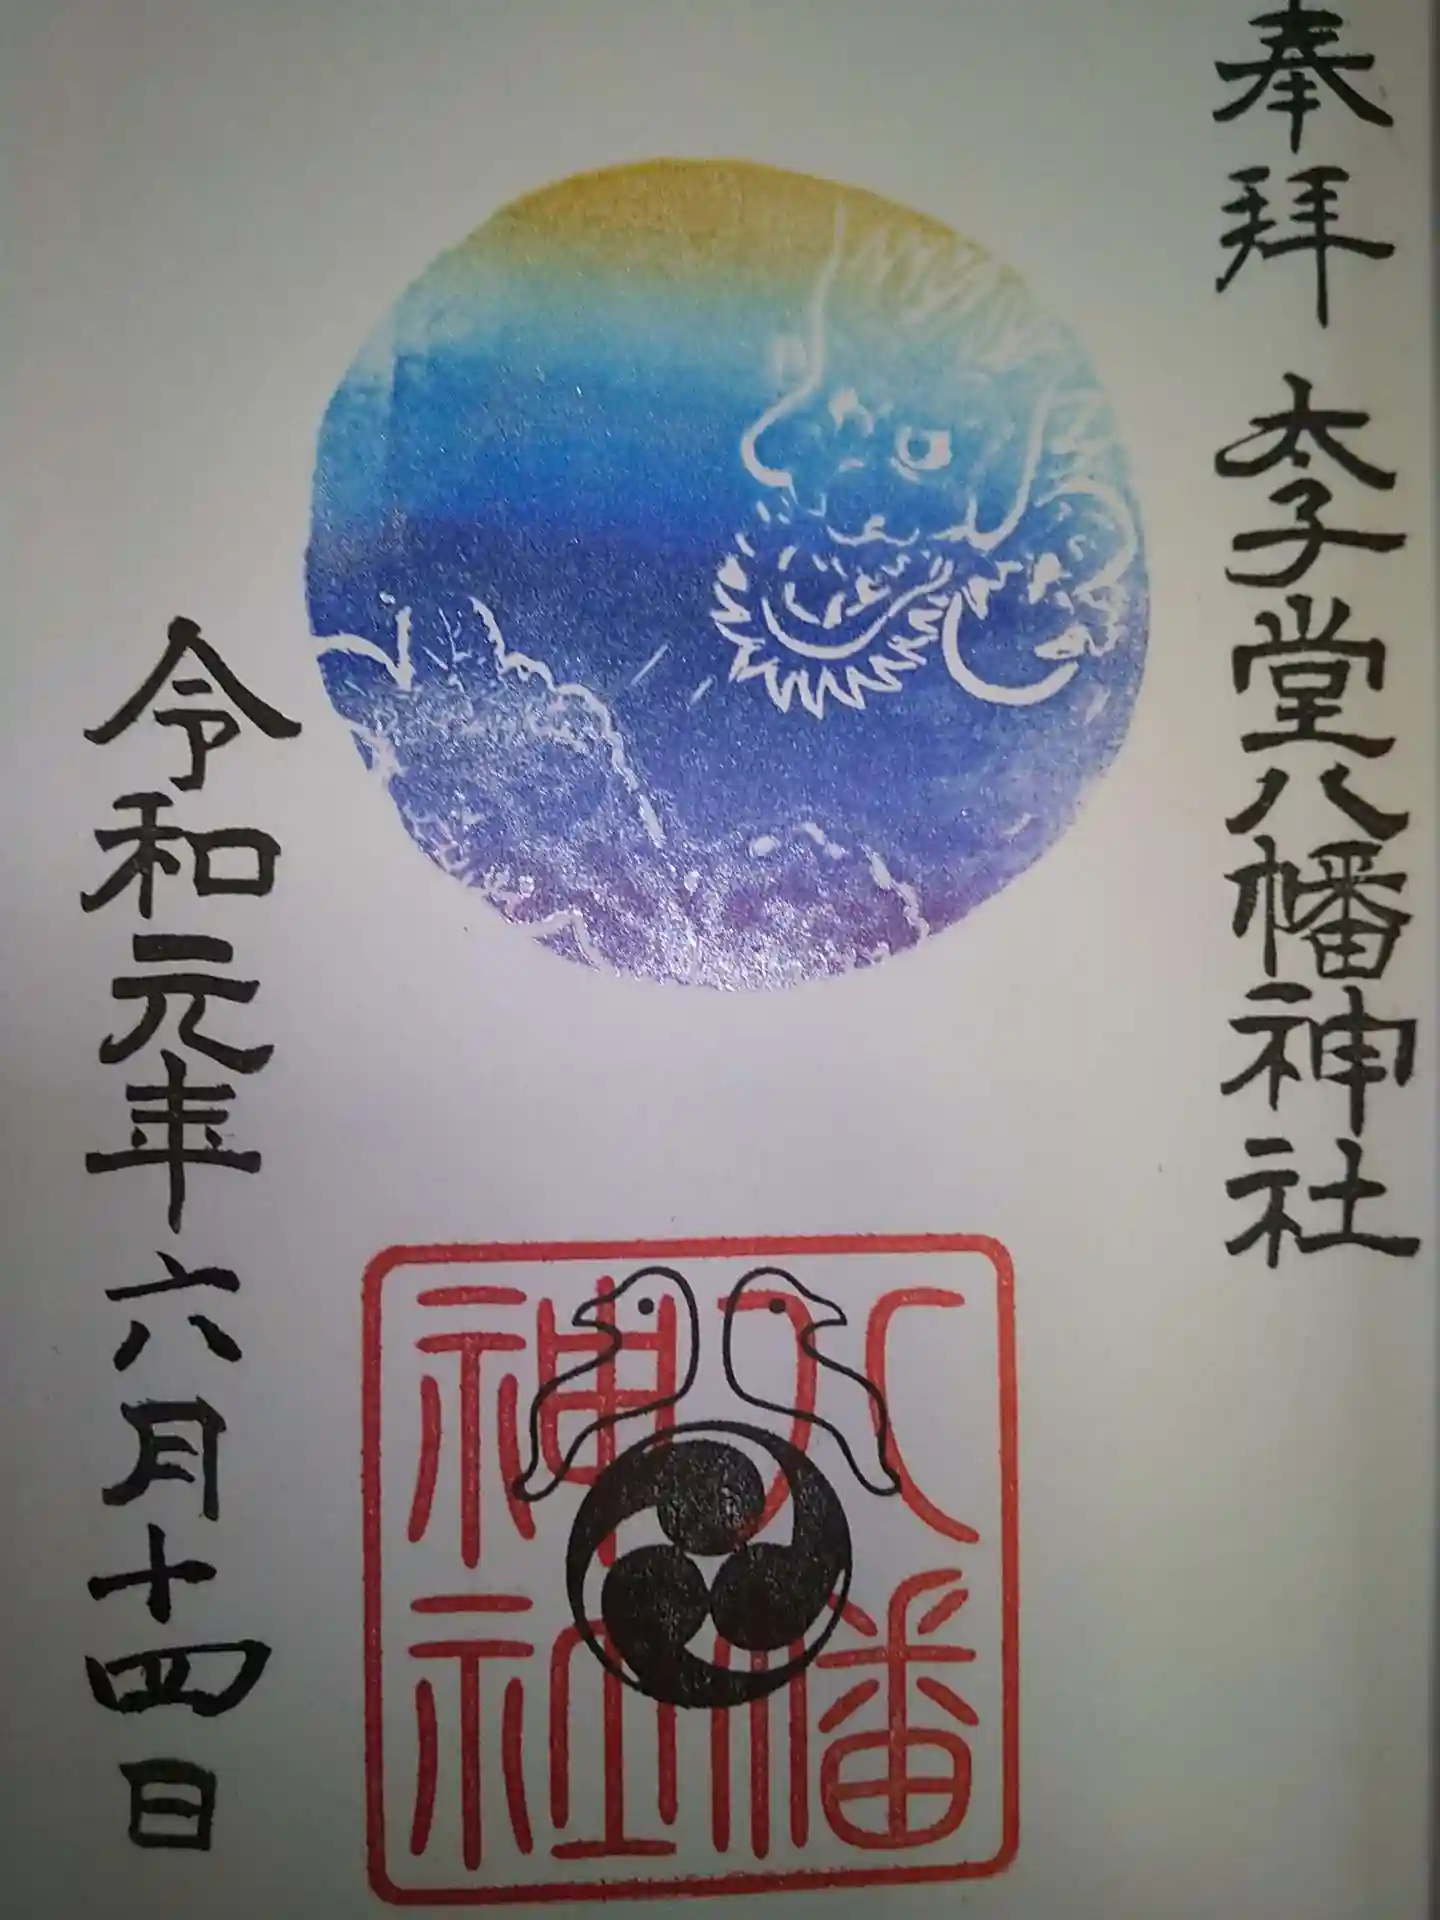 奉拝 太子堂八幡神社
八幡
神社
令和元年六月十四日